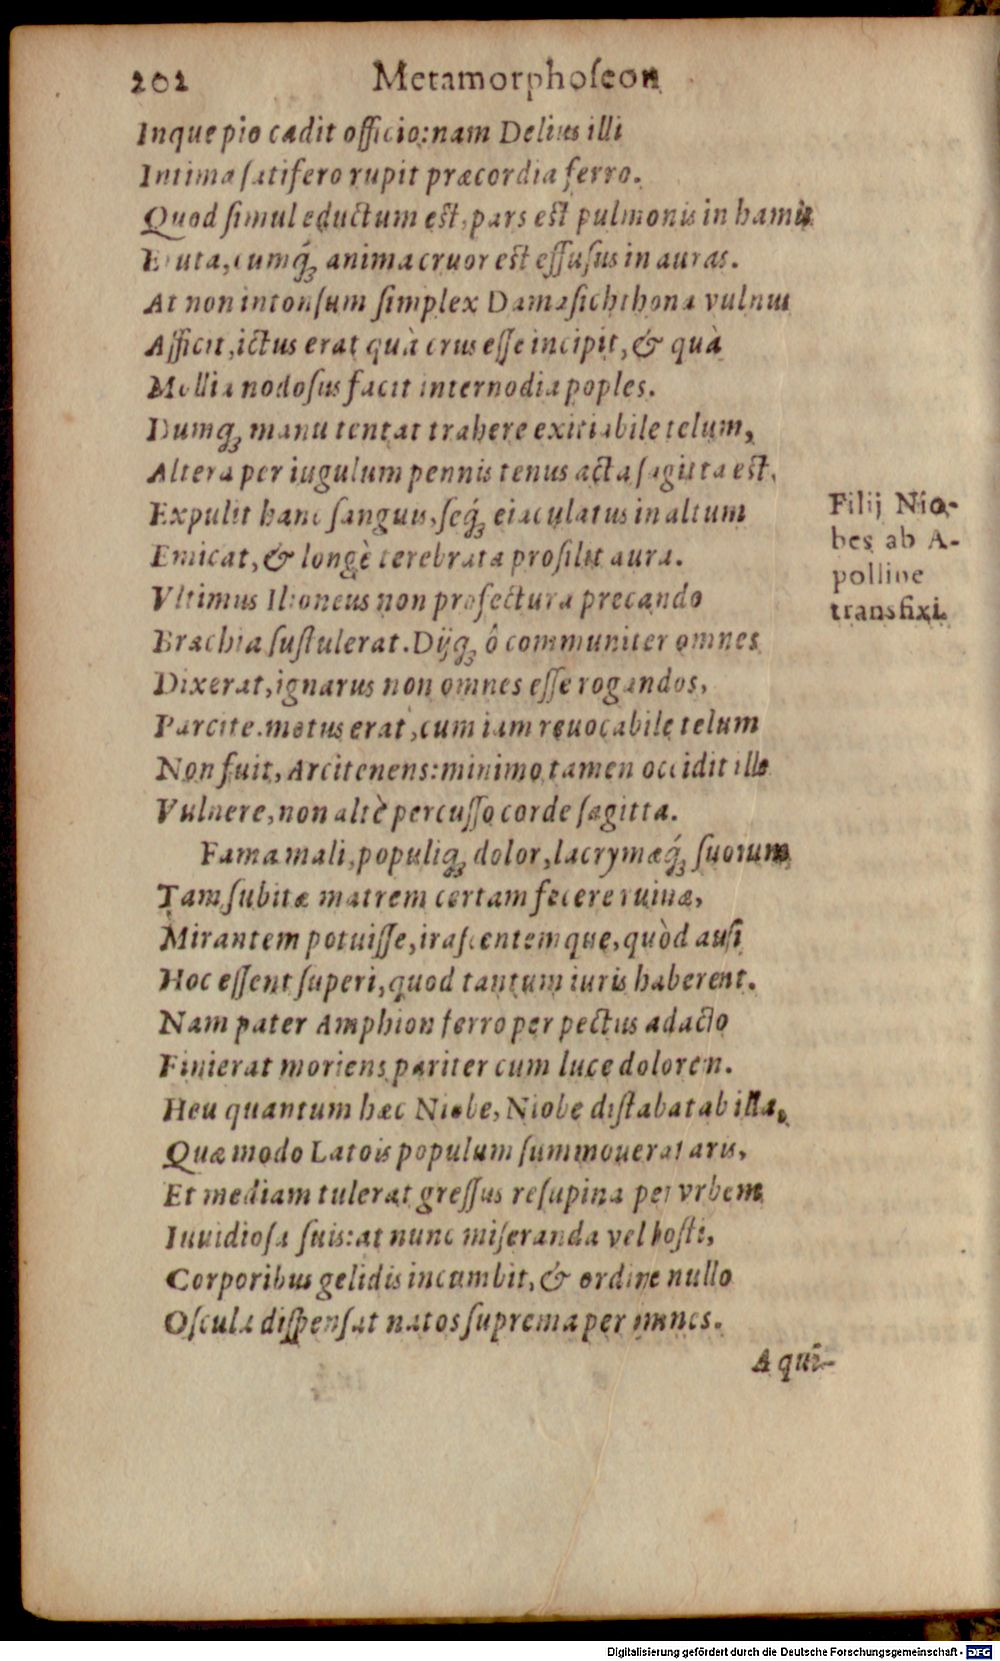 202 Metamorphoſeon
Inque pio cadit officio: nam Delius illi
Intima fatifero rupit præcordia ferro.
Quod ſimul eductum eſt, pars eſt pulmonis in hamis
Eruta, cumq́ꝫ anima cruor eſt effuſus in auras.
At non intonſum ſimplex Damaſichthona vulnus
Afficit, ictus erat quà crus eſſe incipit, & quà
Mollia nodoſus facit internodia poples.
Dumqꝫ manu tentat trahere exitiabile telum,
Altera per iugulum pennis tenus acta ſagitta eſt.
Expulit hanc ſanguis, ſeq́ꝫ eiaculatus in altum
Emicat, & longè terebrata proſilit aura.
Vltimus Ilioneus non profectura precando
Brachia ſuſtulerat. Dijqꝫ ô communiter omnes
Dixerat, ignarus non omnes eſſe rogandos,
Parcite. motus erat, cum iam reuocabile telum
Non fuit, Arcitenens: minimo tamen occidit ille
Vulnere, non altè percuſſo corde ſagitta.
Fama mali, populiqꝫ dolor, lacrymæq́ꝫ ſuorum
Tam ſubitæ matrem certam fecere ruinæ,
Mirantem potuiſſe, iraſcentemque, quòd auſi
Hoc eſſent ſuperi, quod tantum iuris haberent.
Nam pater Amphion ferro per pectus adacto
Finierat moriens pariter cum luce dolorem.
Heu quantum hæc Niobe, Niobe diſtabat ab illa,
Quæ modo Latois populum ſummouerat aris,
Et mediam tulerat greſſus reſupina per vrbem
Inuidioſa ſuis: at nunc miſeranda vel hoſti,
Corporibus gelidis incumbit, & ordine nullo
Oſcula diſpenſat natos ſuprema per omnes.
A qui-
Filij Nio-
bes ab A-
polline
transfixi.
Digitalisierung gefördert durch die Deutsche Forschungsgemeinschaft - DFG